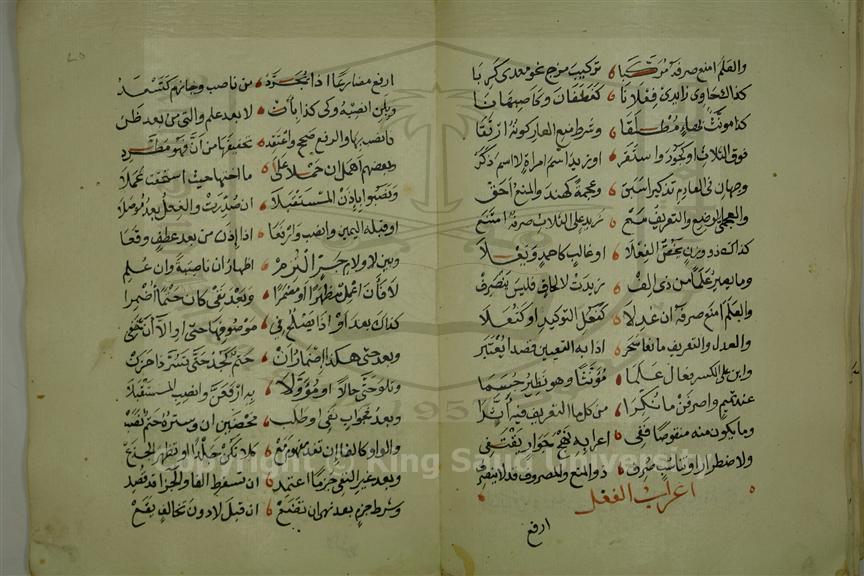 والعلم امنع صرفه مركبا تركيب مزج نحو معدي كربا
كذاك حاوي زايدي فعلانا كغطفان وكاصبهانا
كذا مونث بهاء مطلقا وشرط منع العار كونه ارتقا
فوق الثلاث او كجور او سقر او زيد اسم امراة لا اسم ذكر
وجهان في العادم تذكيرا سبق وعجمة كهند والمنع احق
والعجمي الوضع والتعريف مع زيد على الثلاث صرفه امتنع
كذاك ذو وزن يخص الفعلا او غالب كاحمد ويعلا
وما يصير علما من ذي الف زيدت لالحاق فليس ينصرف
والعلم امنع صرفه ان عدلا كفعل التوكيد او كثعلا
والعدل والتعريف مانعا سحر اذا به التعيين قصدا يعتبر
وابن على الكسر فعال علما مؤنثا وهو نظير جشما
عند تميم واصرفن ما نكرا من كل ما التعريف فيه اثرا
وما يكون منه منقوصا ففي اعرابه نهج جوار يقتفي
ولاضطرار او تناسب صرف ذو المنع والمصروف قد لا ينصرف
اعراب الفعل
ارفع
ارفع مضارعا اذا تجرد من ناصب وجازم كتسعد
وبلن انصبه وكي كذا بان لا بعد علم والتي من بعد ظن
فانصب بها والرفع صحح واعتقد تخفيفها من ان فهو مطرد
وبعضهم اهمل ان حملا على ما اختها حيث استحقت عملا
ونصبوا باذن المستقبلا ان صدرت والفعل بعد موصلا
او قبله اليمين وانصب وارفعا اذا اذن من بعد عطف وقعا
وبين لا ولام جر التزم اظهار ان ناصبة وان عدم
لا فان اعمل مظهرا او مضمرا وبعد نفي كان حتما اضمرا
كذاك بعد او اذا يصلح في موضعها حتى او الا ان خفي
وبعد حتى هكذا اضمار ان حتم كجد حتى تسر ذا حزن
وتلو حتى حالا او مؤولا به ارفعن وانصب المستقبلا
وبعد فا جواب نفي او طلب محضين ان وسترة حتم نصب
والواو كالفا ان تفد مفهوم مع كلا تكن جلدا وتظهر الجزع
وبعد غير النفي جزما اعتمد ان تسقط الفا والجزا قد قصد
وشرط جزم بعد نهي ان تضع ان قبل لا دون تخالف يقع
Copyright © King Saud University
1957